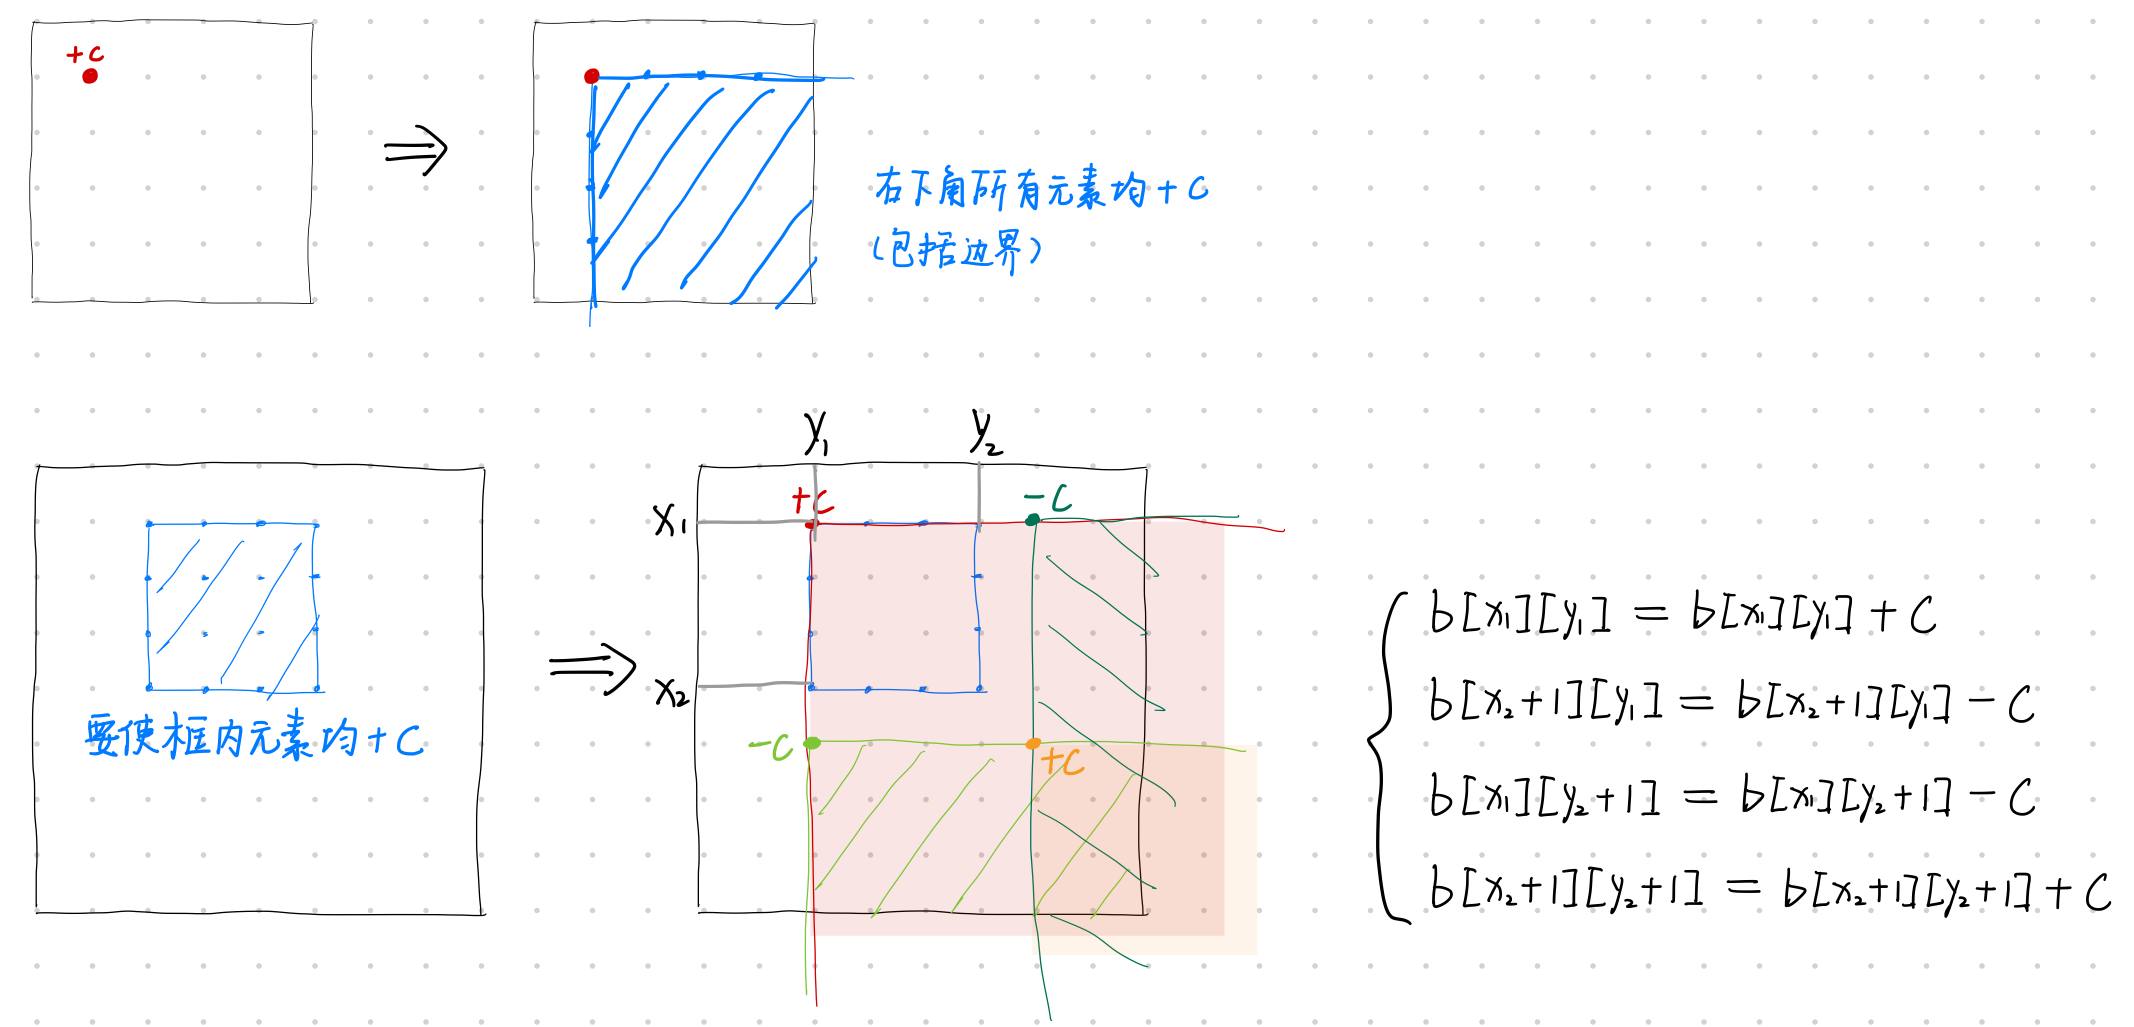 +c
右下角所有元素均+c
(包括边界)
y₁
y₂
x₁
+c
-c
x₂
要使框内元素均+c
-c
+c
b[x₁][y₁] = b[x₁][y₁] + c
b[x₂+1][y₁] = b[x₂+1][y₁] - c
b[x₁][y₂+1] = b[x₁][y₂+1] - c
b[x₂+1][y₂+1] = b[x₂+1][y₂+1] + c